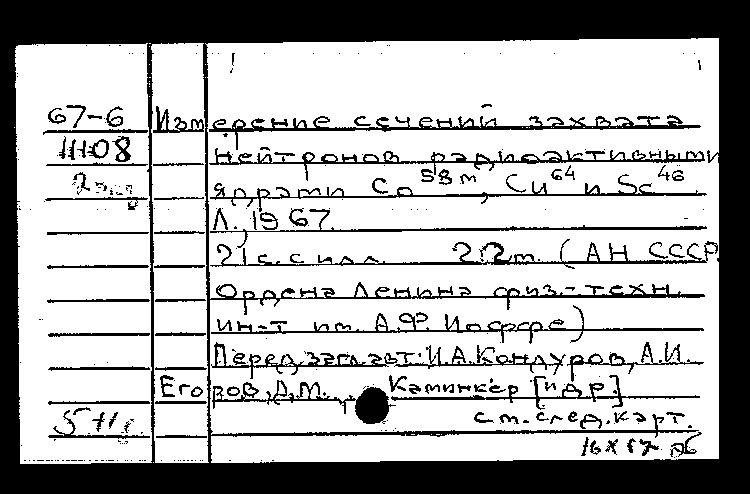 67-6 Измерение сечений захвата
нейтронов радиоактивными
2 экз ядрами Co⁵⁸ᵐ, Cu⁶⁴ и Sc⁴⁶.
Л., 1967.
21 с. с илл. 22 т. (АН СССР.
Ордена Ленина физ.-техн.
ин-т им. А.Ф. Иоффе)
Перед загл. авт: И.А. Кондуров, А.И.
Егоров, Д.М. Каминкер [и др.]
см. след. карт.